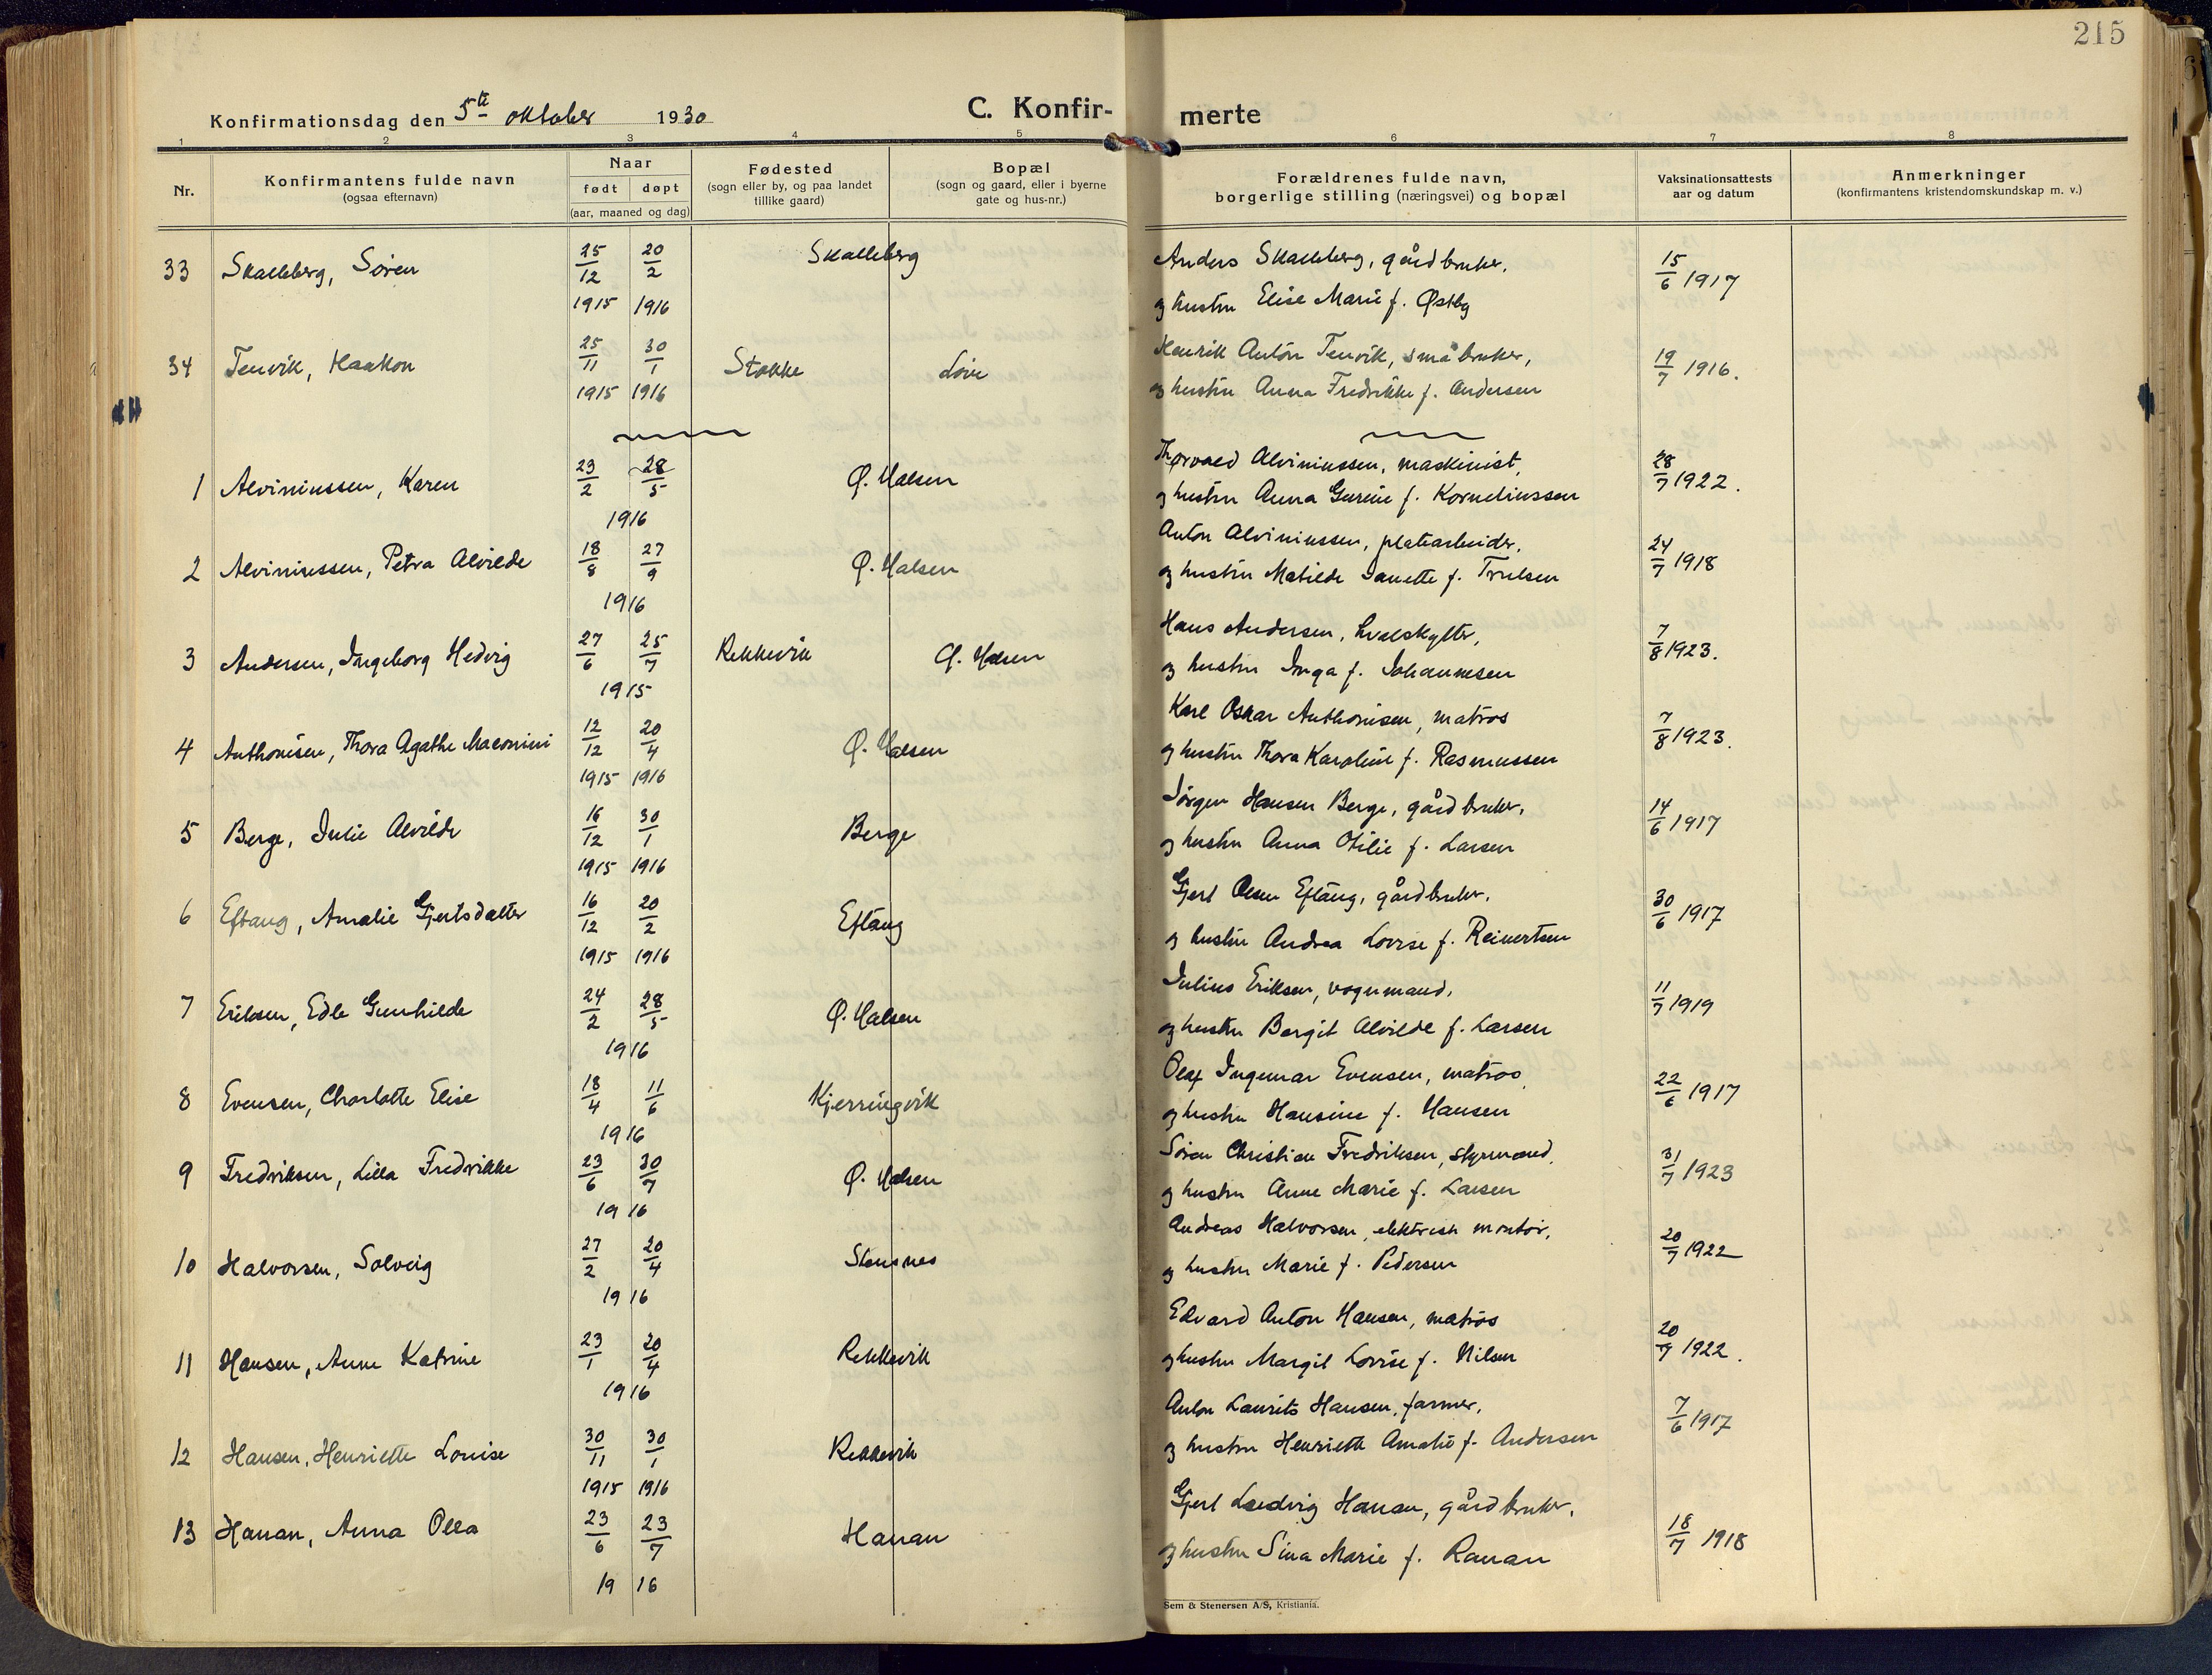 215
Konfirmationsdag den 5te oktober 1930 C. Konfir- merte
1 2 3 4 5 6 7 8
Nr. Konfirmantens fulde navn (ogsaa efternavn) Naar født døpt (aar, maaned og dag) Fødested (sogn eller by, og paa landet tillike gaard) Bopæl (sogn og gaard, eller i byerne gate og hus-nr.) Forældrenes fulde navn, borgerlige stilling (næringsvei) og bopæl Vaksinationsattests aar og datum Anmerkninger (konfirmantens kristendomskundskap m. v.)
33 Skalleberg, Søren 25/12 1915 20/2 1916 Skalleberg Anders Skalleberg, gårdbruker, 15/6 1917
og hustru Elise Marie f. Østby
34 Tenvik, Haakon 25/11 1915 30/1 1916 Stokke Løve Henrik Anton Tenvik, småbruker, 19/7 1916.
og hustru Anna Fredrikke f. Andersen
1 Alviniussen, Karen 23/2 28/5 1916 Ø. Halsen Thorvald Alviniussen, maskinist, 28/7 1922.
og hustru Anna Gurine f. Korneliussen
2 Alviniussen, Petra Alvilde 18/8 27/9 1916 Ø. Halsen Anton Alviniussen, platearbeider, 24/7 1918
og hustru Matilde Janette f. Trulsen
3 Andersen, Ingeborg Hedvig 27/6 25/7 1915 Rekkevik Ø. Halsen Hans Andersen, hvalskytter, 7/8 1923.
og hustru Inga f. Johannesen
4 Anthonisen, Thora Agathe 12/12 1915 20/4 1916 Ø. Halsen Karl Oskar Anthonisen, matros 7/8 1923.
og hustru Thora Karoline f. Rasmussen
5 Berge, Julie Alvilde 16/12 1915 30/1 1916 Berge Jørgen Hansen Berge, gårdbruker, 14/6 1917
og hustru Anna Otilie f. Larsen
6 Eftang, Amalie Gjertsdatter 16/12 1915 20/2 1916 Eftang Gjert Olsen Eftang, gårdbruker, 30/6 1917
og hustru Andrea Lovise f. Reinertsen
7 Eriksen, Edle Gunhilde 24/2 28/5 1916 Ø. Halsen Julius Eriksen, vognmand, 11/7 1919
og hustru Borgit Alvilde f. Larsen
8 Evensen, Charlotte Elise 18/4 11/6 1916 Kjerringvik Olaf Ingemar Evensen, matros, 22/6 1917
og hustru Hansine f. Hansen
9 Fredriksen, Lilla Fredrikke 23/6 30/7 1916 Ø. Halsen Søren Christian Fredriksen, styrmand, 31/7 1923
og hustru Anne Marie f. Larsen
10 Halvorsen, Solveig 27/2 20/4 1916 Stensnes Andreas Halvorsen, elektrisk montør, 20/7 1922
og hustru Marie f. Pedersen
11 Hansen, Anne Katrine 23/1 20/4 1916 Rekkevik Edvard Anton Hansen, matros 20/7 1922.
og hustru Margit Lovise f. Nilsen
12 Hansen, Henriette Louise 30/11 1915 30/1 1916 Rekkevik Anton Laurits Hansen, farmer, 7/6 1917
og hustru Henriette Amalie f. Andersen
13 Hauan, Anna Olla 23/6 23/7 1916 Hauan Gjert Ludvig Hauan, gårdbruker, 18/7 1918
og hustru Sina Marie f. Rauan
Sem & Stenersen A/S, Kristiania.